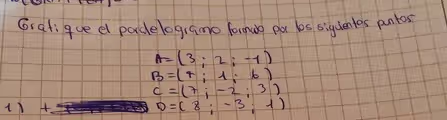 Grafique el paralelogramo formado por los siguientes puntos
A=(3; 2; -1)
B=(4; 1; 6)
C=(7; -2; 3)
1) + D=(8; -3; 1)